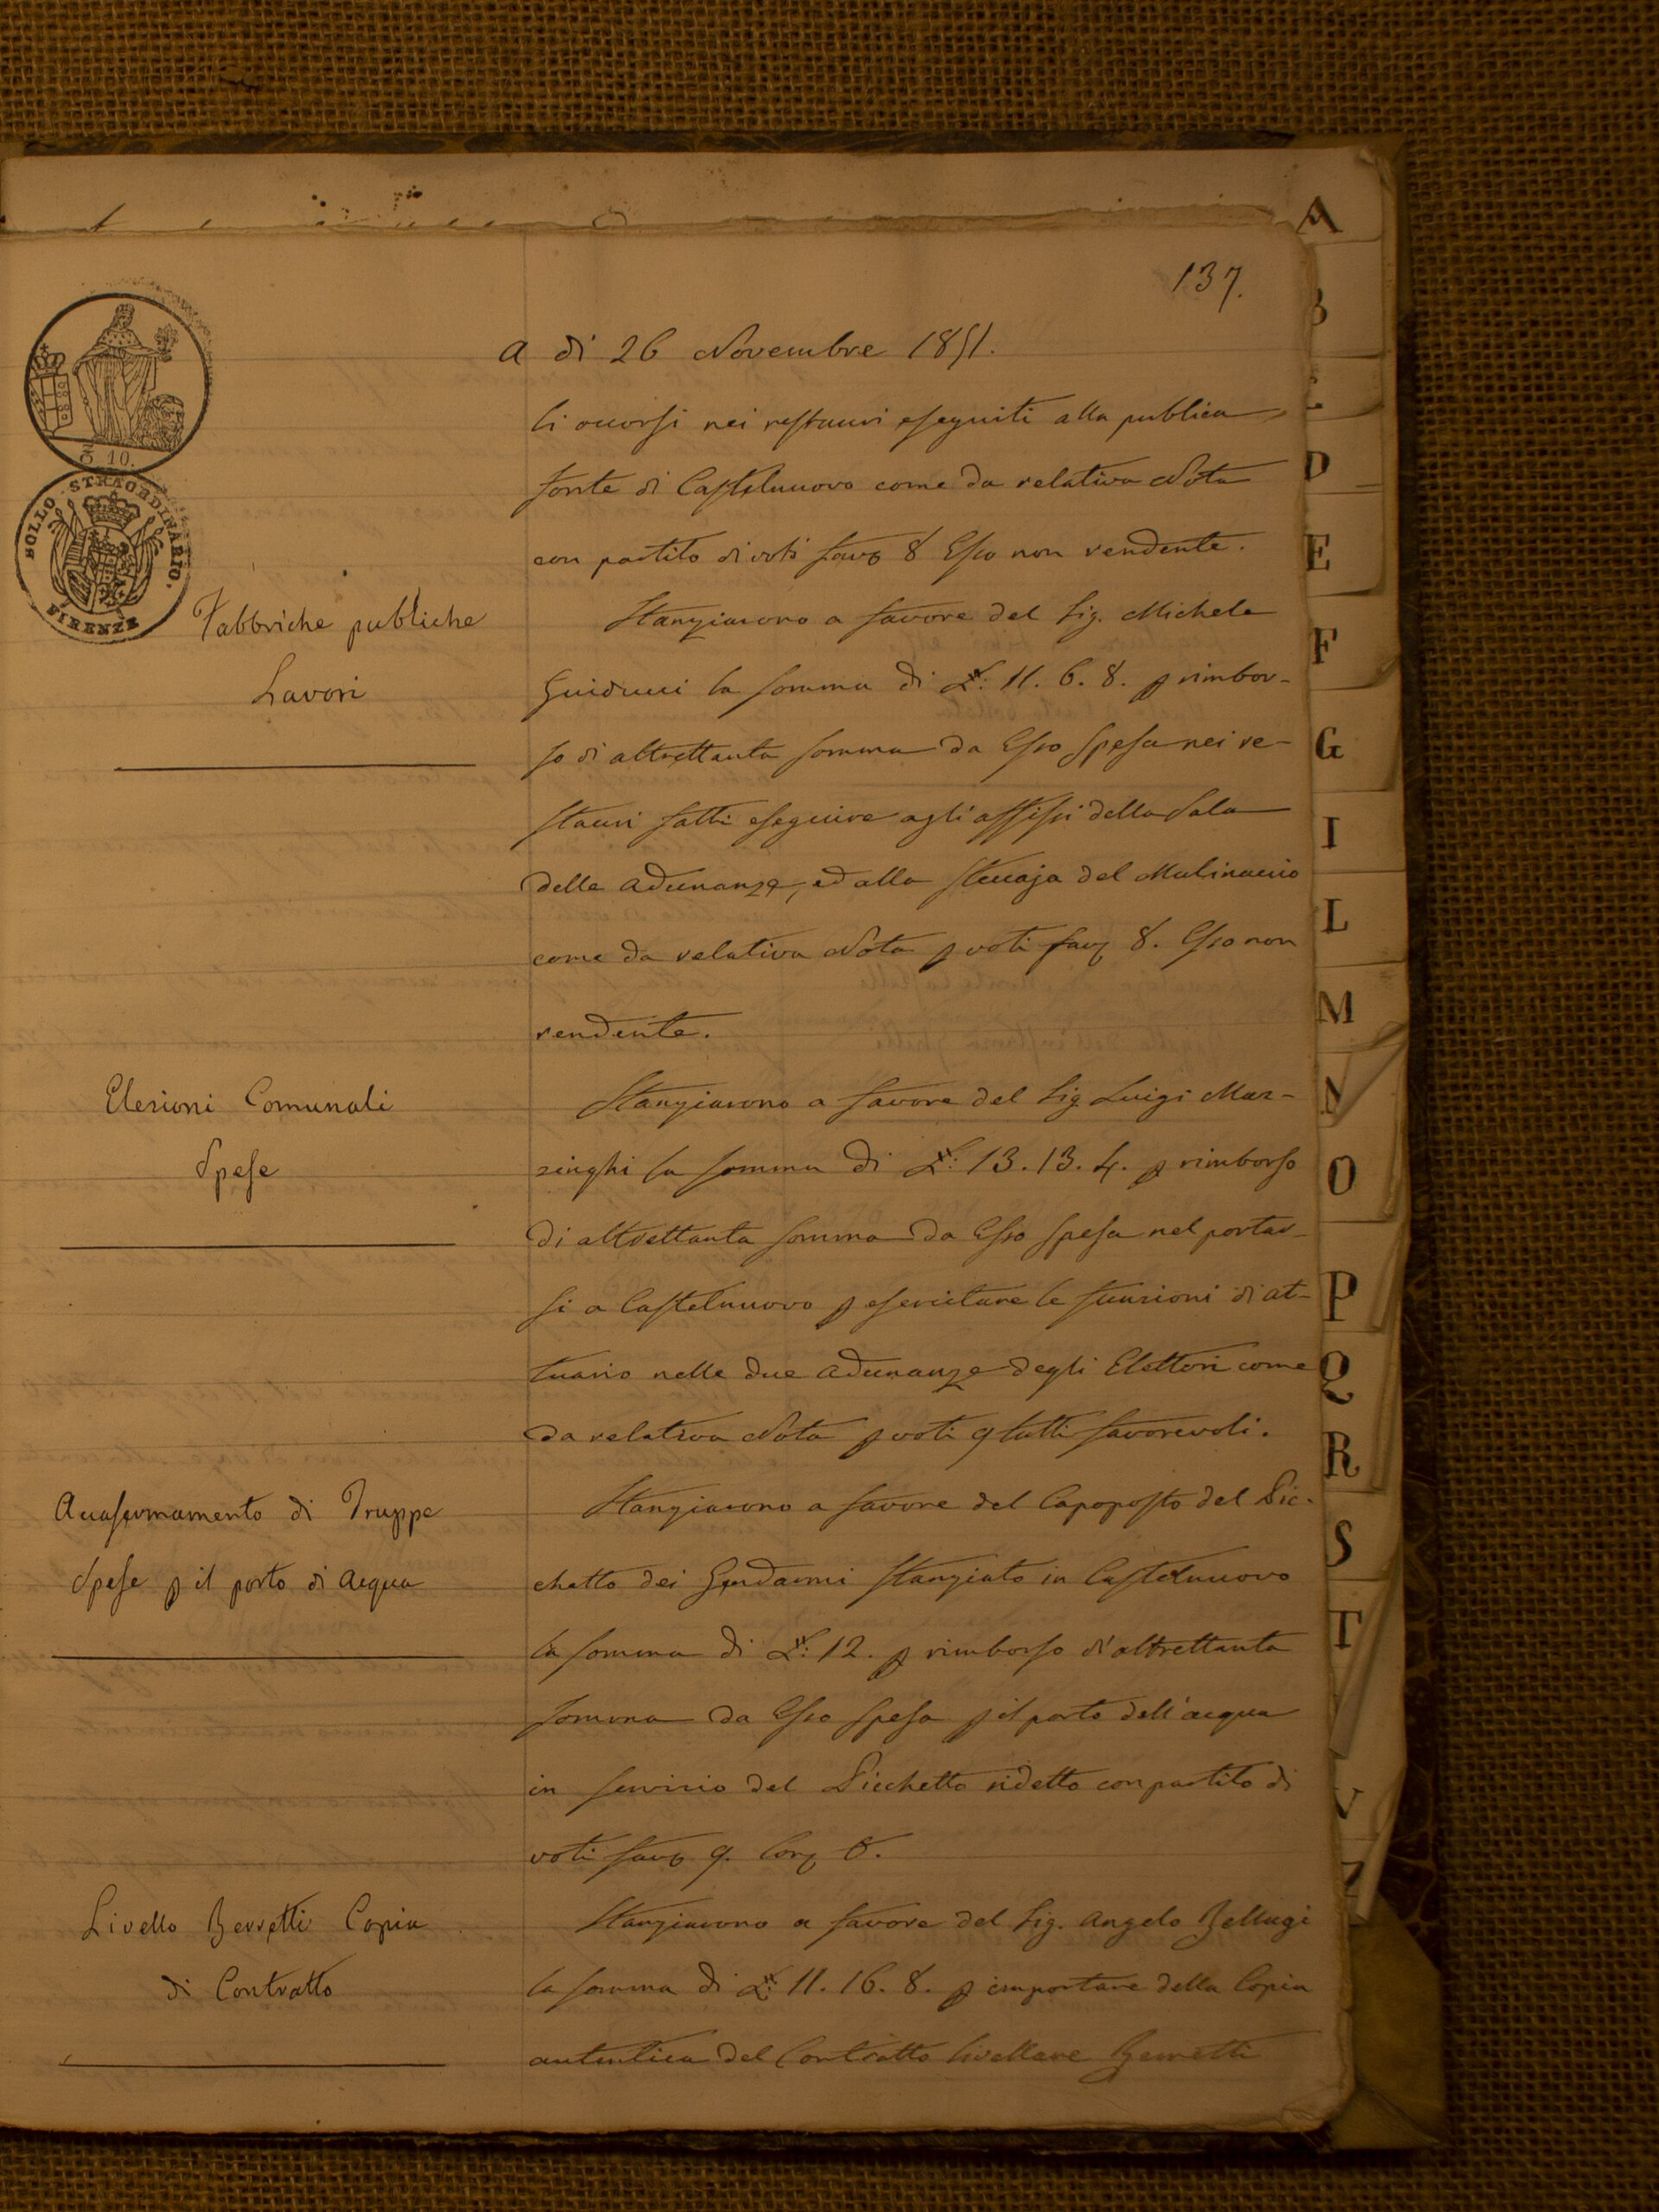 137.
A di 26 Novembre 1851.
li occorsi nei restauri eseguiti alla publica
fonte di Castelnuovo come da relativa Nota
con partito di voti favi 8 Esso non rendente.
Fabbriche publiche
Lavori
Stanziarono a favore del Sig. Michele
Guiducci la somma di £: 11. 6. 8. p rimbor-
so di altrettanta somma da Esso spesa nei re-
stauri fatti eseguire agli affissi della Sala
delle adunanze, ed alla steccaja del Mulinaccio
come da relativa Nota p voti favi 8. Esso non
rendente.
Elezioni Comunali
Spese
Stanziarono a favore del Sig. Luigi Mar-
zinghi la somma di £: 13. 13. 4. p rimborso
di altrettanta somma da Esso spesa nel portar-
si a Castelnuovo p esercitare le funzioni di at-
tuario nelle due adunanze degli Elettori come
da relativa Nota p voti 9 tutti favorevoli.
Accasermamento di Truppe
Spese p il porto di Acqua
Stanziarono a favore del Capoposto del Pic-
chetto dei Gendarmi stanziato in Castelnuovo
la somma di £: 12. p rimborso di altrettanta
somma da Esso spesa p il porto dell'acqua
in servizio del Picchetto ridetto con partito di
voti favi 9. Cori 0.
Livello Berretti Copia
di Contratto
Stanziarono a favore del Sig. Angelo Bellugi
la somma di £: 11. 16. 8. p importare della Copia
autentica del Contratto livellare Berretti
3 10.
BOLLO STRAORDINARIO.
FIRENZE
A
B
D
E
F
G
I
L
M
N
O
P
Q
R
S
T
V
Z